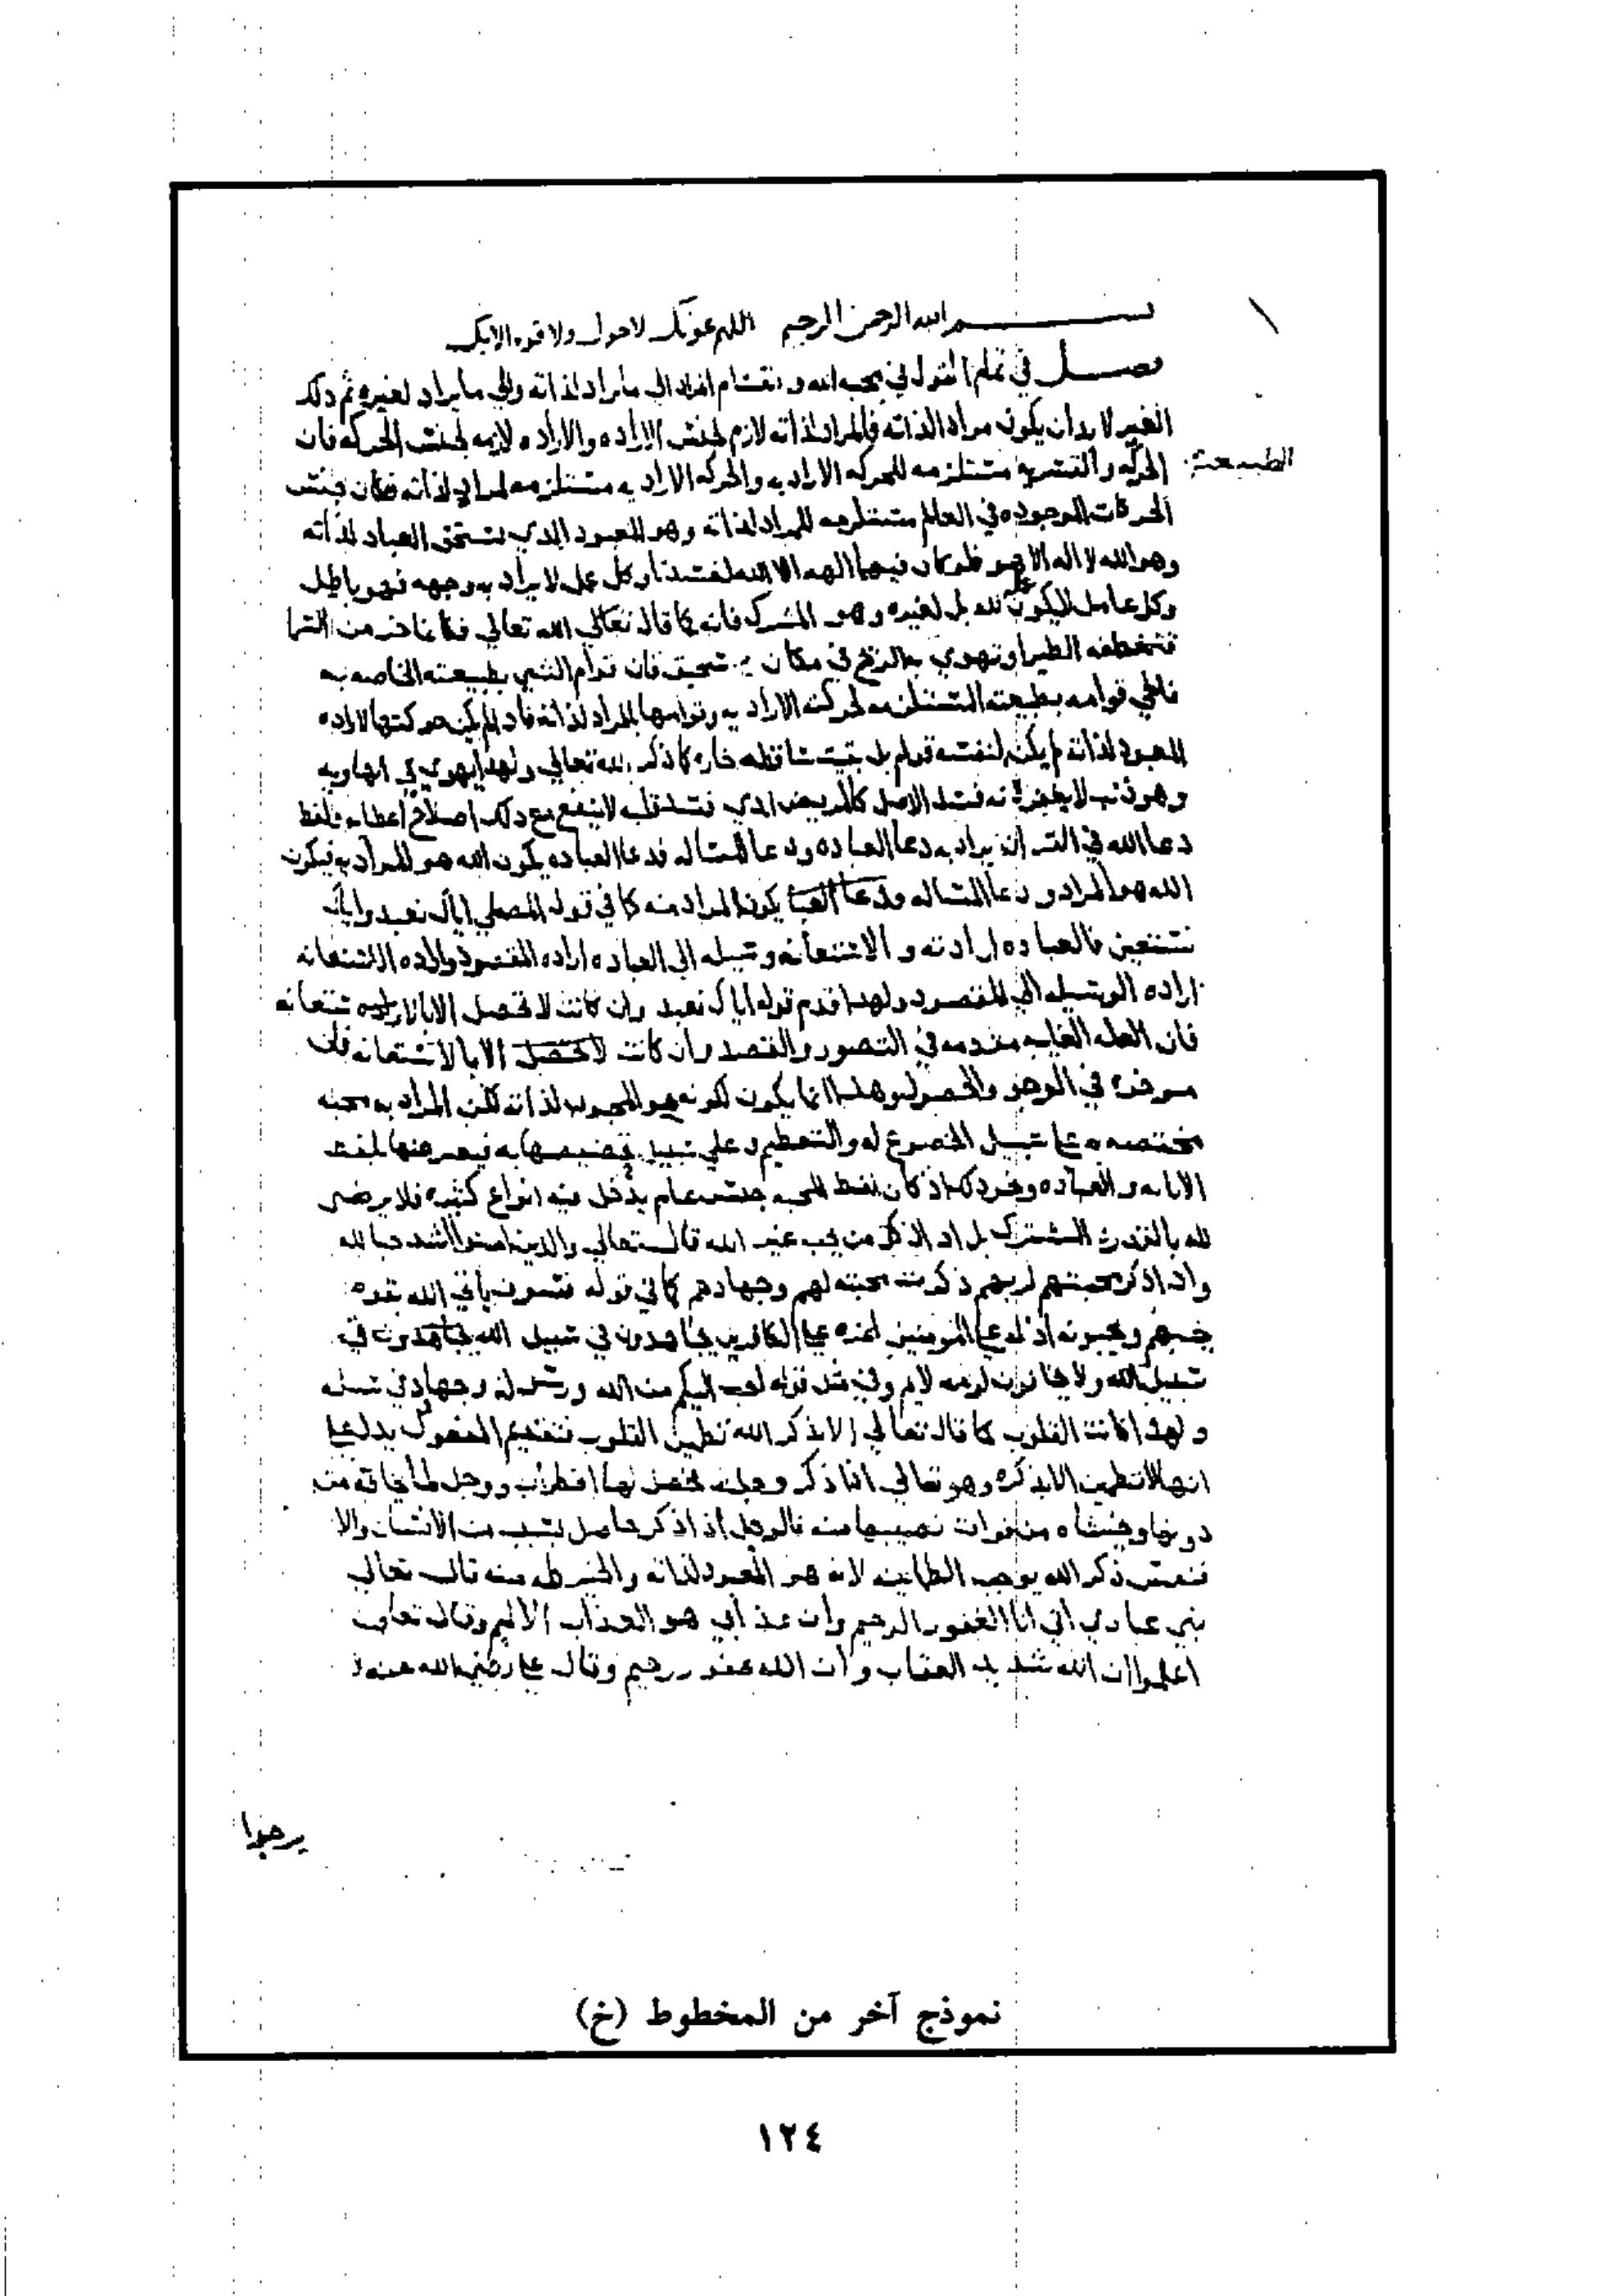 بسم الله الرحمن الرحيم اللهم عونك لا حول ولا قوه الا بك
فصل في تمام القول في محبه الله وانقسام المراد الى ما يراد لذاته والى ما يراد لغيره ثم ذلك
الغير لا بد ان يكون مراد الذاته فالمراد لذاته لازم لجنس الاراده والاراده لازمه لجنس الحركه فان
الطبيعيه
الحركه والقسريه مستلزمه للحركه الاراديه والحركه الاراديه مستلزمه لمراد لذاته فكان جنس
الحركات الموجوده في العالم مستلزمه للمراد لذاته وهو المعبود الذي يستحق العباده لذاته
وهو الله لا اله الا هو فلو كان فيهما الهه الا الله لفسدتا وكل عمل لا يراد به وجهه فهو باطل
وكل عامل لا يكون لله بل لغيره وهو المشرك فانه كما قال تعالى الله تعالي فكانما خر من السما
فتخطفه الطير او تهوي به الريح في مكان سحيق فان قوام الشي بطبيعته الخاصه به
قوامه بطبيعته المستلزمه لحركته الاراديه وقوامها بالمراد لذاته فاذا لم يكن حركتها لاراده
المعبود لذاته لم يكن لنفسه قوام بل بقيت ساقطه خاره كما ذكر الله تعالي ولهذا يهوي في الهاويه
وهو ذنب لا يغفر لانه فسد الاصل كالمريض الذي فسد قلبه لا ينفع مع ذلك اصلاح اعضايه فلفظ
دعا الله في القران يراد به دعا العباده ودعا المساله فدعا العباده يكون الله هو المراد به فيكون
الله هو المراد ودعا المساله يكون المراد منه كما في قول المصلي اياك نعبد واياك
نستعين فالعباده ارادته والاستعانه وسيله الى العباده اراده المقصود واراده الاستعانه
اراده الوسيله الى المقصود ولهذا قدم قوله اياك نعبد وان كانت لا تحصل الا بالاستعانه
فان العله الغاييه مقدمه في التصور والقصد وان كانت لا تحصل الا بالاستعانه فان
موخره في الوجود والحصول وهذا انما يكون لكونه هو المحبوب لذاته لكن المراد به محبه
مختصه على سبيل الخضوع له والتعظيم وعلي سبيل تخصيصها به فيعبر عنها بلفظ
الانابه والعباده ونحو ذلك اذ كان لفظ المحبه جنس عام يدخل فيه انواع كثيره فلا يرضى
لله بالقدر المشترك بل اذا ذكر من يحب غير الله قال تعالي والذين امنوا اشد حبا لله
واذا ذكر محبتهم لربهم ذكرت محبته لهم وجهادهم كما في قوله فسوف ياتي الله بقوم
يحبهم ويحبونه اذله على المومنين اعزه على الكافرين يجاهدون في سبيل الله يجاهدون في
سبيل الله ولا يخافون لومه لايم وفي مثل قوله احب اليكم من الله ورسوله وجهاد في سبيله
ولهذا كانت القلوب كما قال تعالي الا بذكر الله تطمين القلوب فتقديم المفعول يدل على
انها لا تطمين الا بذكره وهو تعالي اذا ذكر وجلت يحصل لها اضطراب ووجل لما يخافه من
دونها ويخشاه من فوات نصيبها منه فالوجل اذا ذكر حاصل بسبب من الانسان والا
فنفس ذكر الله يوجب الطمانينه لانه هو المعبود لذاته والخير كله منه قال تعالي
نبي عبادي اني انا الغفور الرحيم وان عذابي هو العذاب الاليم وقال تعالى
اعلموا ان الله شديد العقاب وان الله غفور رحيم وقال على رضي الله عنه لا
يرجوا
نموذج آخر من المخطوط (خ)
١٢٤